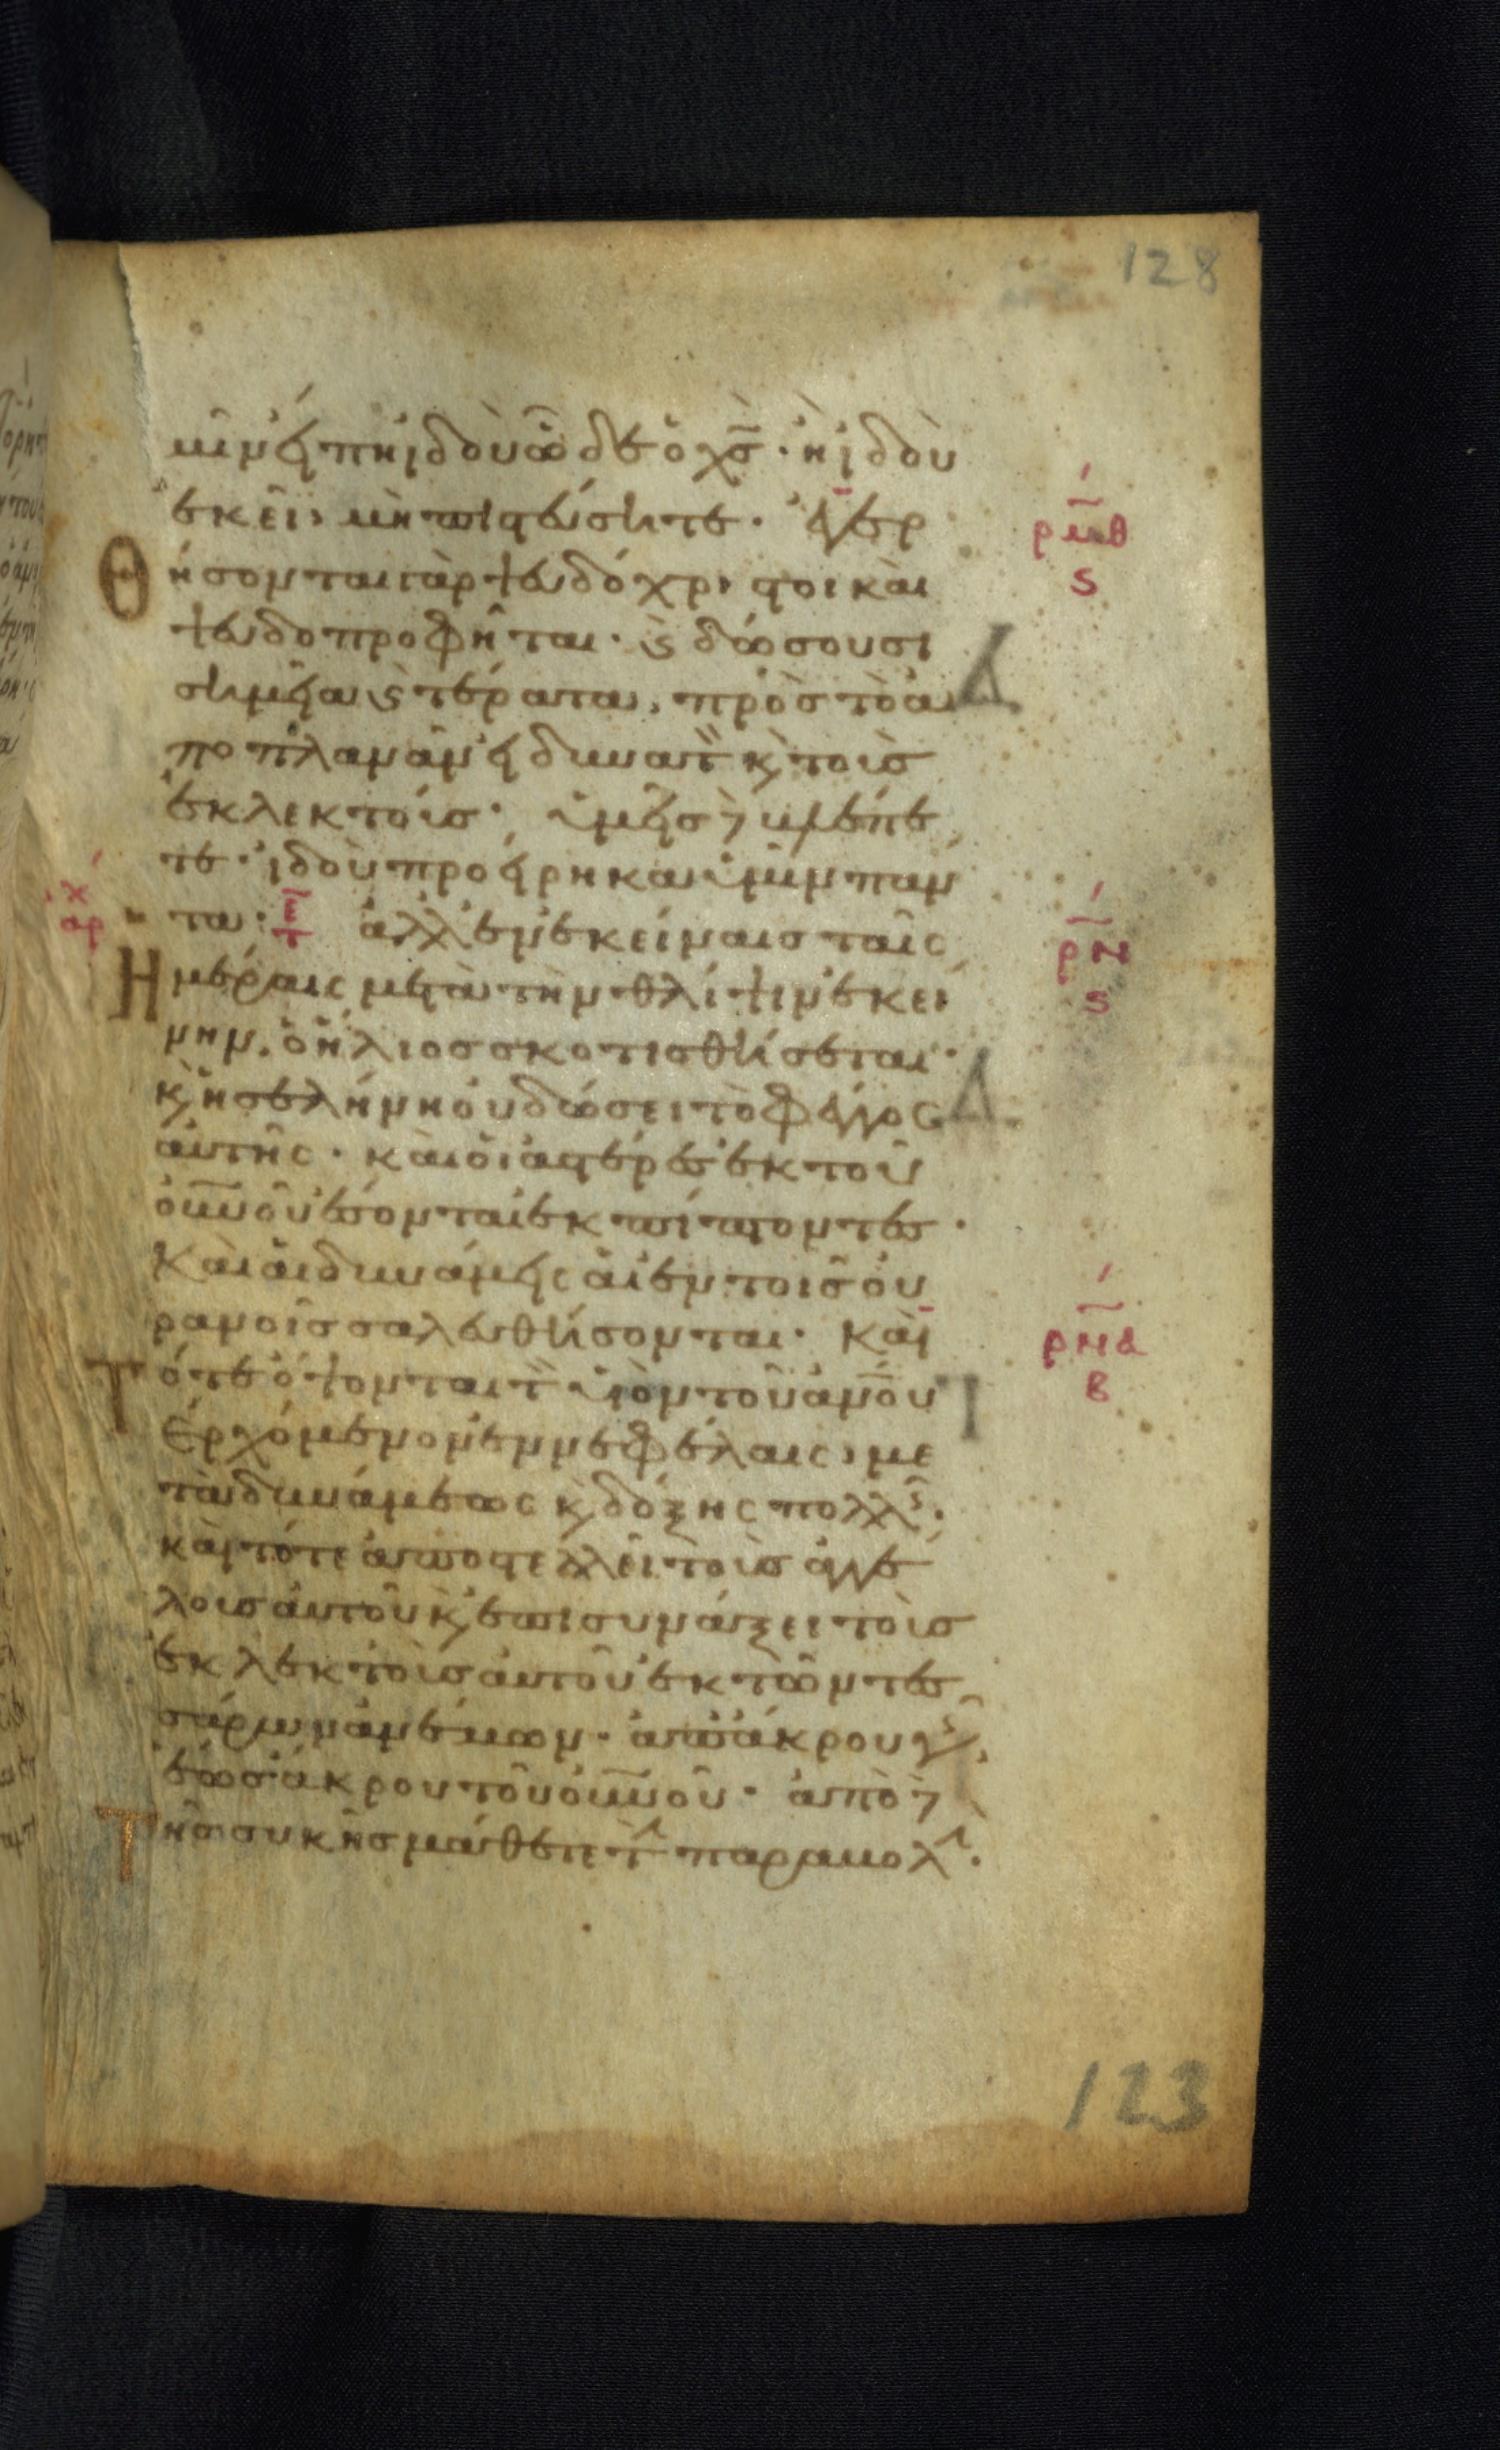 128
μῖν εἴπη ἰδοὺ ὧδε ὁ χ̅ς̅· ἢ ἰδοὺ
ἐκεῖ, μὴ πιστεύσητε· ἐγερ
ρ̅μ̅θ̅
ς
θήσονται γὰρ ψευδόχριστοι καὶ
ψευδοπροφῆται· ϗ δώσουσι
σημεῖα ϗ τέρατα, πρὸς τὸ ἀ
ποπλανᾶν εἰ δυνατὸν ϗ τοὺς
ἐκλεκτούς· ὑμεῖς δὲ βλέπε
τε· ἰδοὺ προείρηκα ὑμῖν πάν
τα· ἀλλ' ἐν ἐκείναις ταῖς
αρχ
ρ̅ν̅
ς
ἡμέραις μετὰ τὴν θλίψιν ἐκεί
νην. ὁ ἥλιος σκοτισθήσεται·
ϗ ἡ σελήνη οὐ δώσει τὸ φέγγος
αὐτῆς· καὶ οἱ ἀστέρες ἐκ τοῦ
οὐ̅ν̅οῦ ἔσονται ἐκπίπτοντες·
Καὶ αἱ δυνάμεις αἱ ἐν τοῖς οὐ
ρανοῖς σαλευθήσονται· Καὶ
ρ̅ν̅α̅
β
τότε ὄψονται τὸν υἱὸν τοῦ ἀν̅ο̅υ
Ἐρχόμενον ἐν νεφέλαις, με
τὰ δυνάμεως ϗ δόξης πολλῆς·
καὶ τότε ἀποστελλεῖ τοὺς ἀγγέ
λους αὐτοῦ ϗ ἐπισυνάξει τοὺς
ἐκλεκτοὺς αὐτοῦ ἐκ τῶν τεσ
σάρων ἀνέμων· ἀπ' ἄκρου γῆς,
ἕως ἄκρου τοῦ οὐ̅ν̅οῦ· ἀπὸ δὲ
τῆς συκῆς μάθετε τὴν παραβολήν.
123